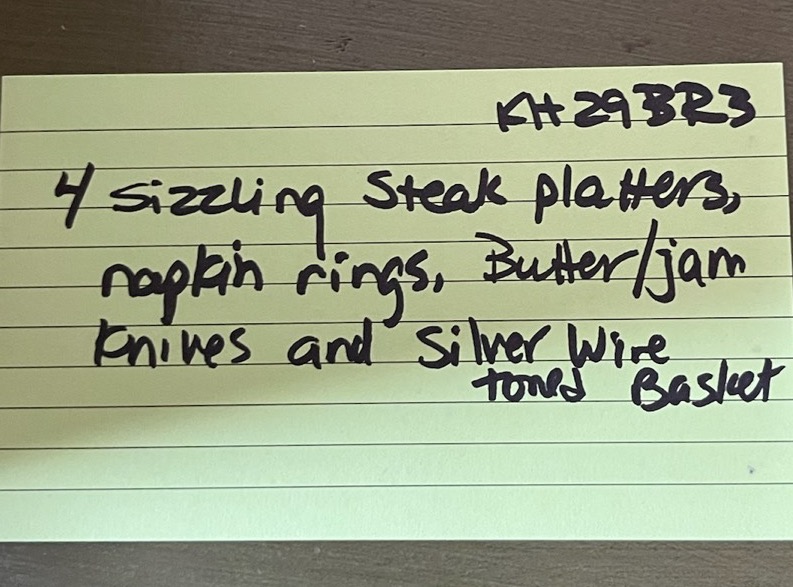 KH29BR3
4 sizzling Steak platters,
napkin rings, Butter/jam
Knives and Silver Wire
toned Basket